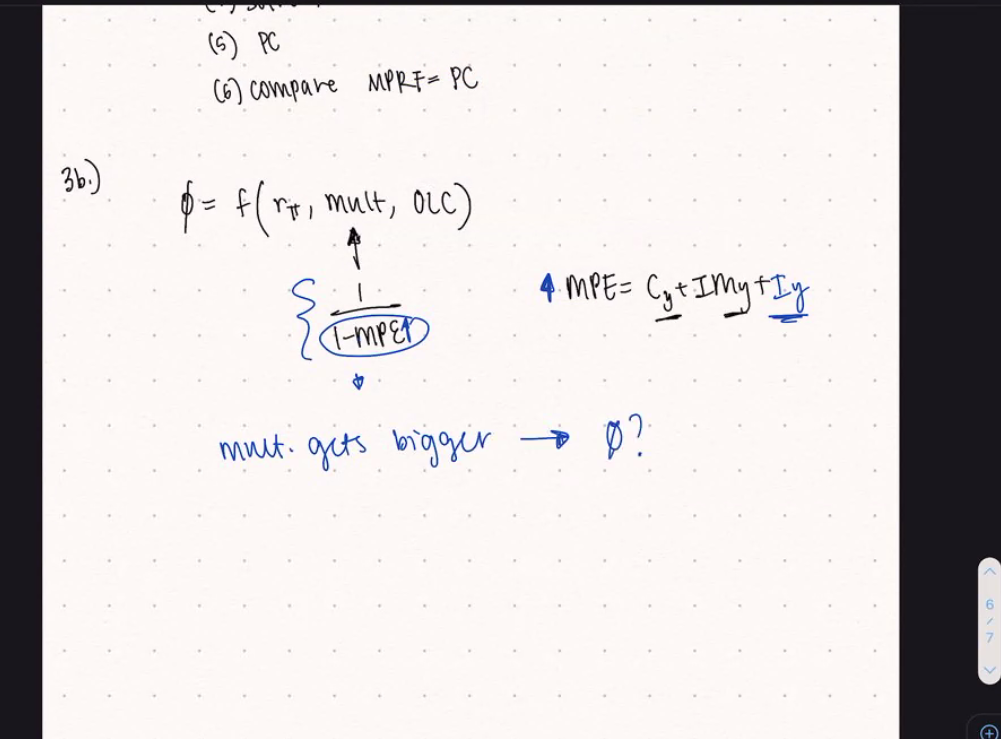 (5) PC
(6) compare MPRF = PC
3b.)
ϕ = f(rπ, mult, OLC)
1
1-MPE↑
↑ MPE = Cy + IMy + Iy
mult. gets bigger → ϕ?
6
/
7